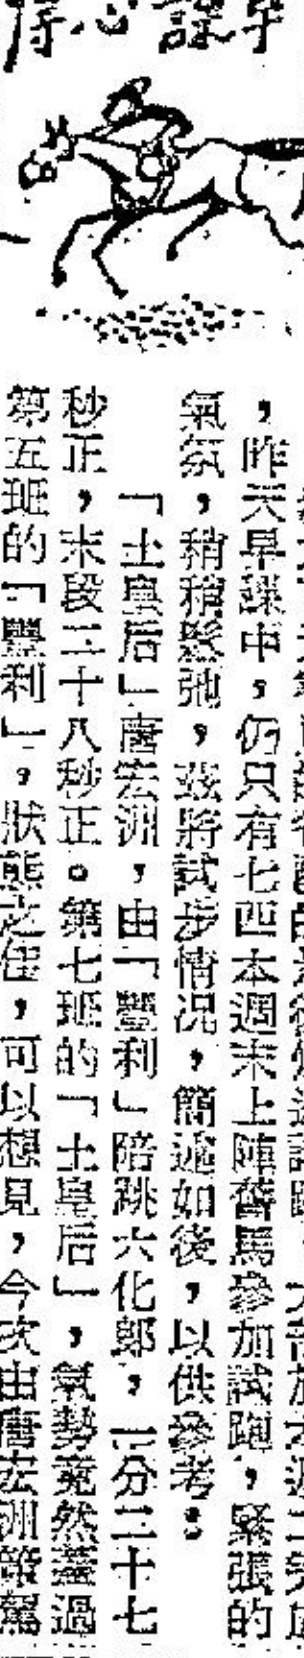 早課心得
，昨天早課中，仍只有七四本週末上陣舊馬參加試跑，緊張的
氣氛，稍稍鬆弛，茲將試步情況，簡述如後，以供參考：
「土皇后」唐宏洲，由「豐利」陪跳六化郎，一分二十七
秒正，末段二十八秒正。第七班的「土皇后」，氣勢竟然蓋過
第五班的「豐利」，狀態之佳，可以想見，今次由唐宏洲策駕